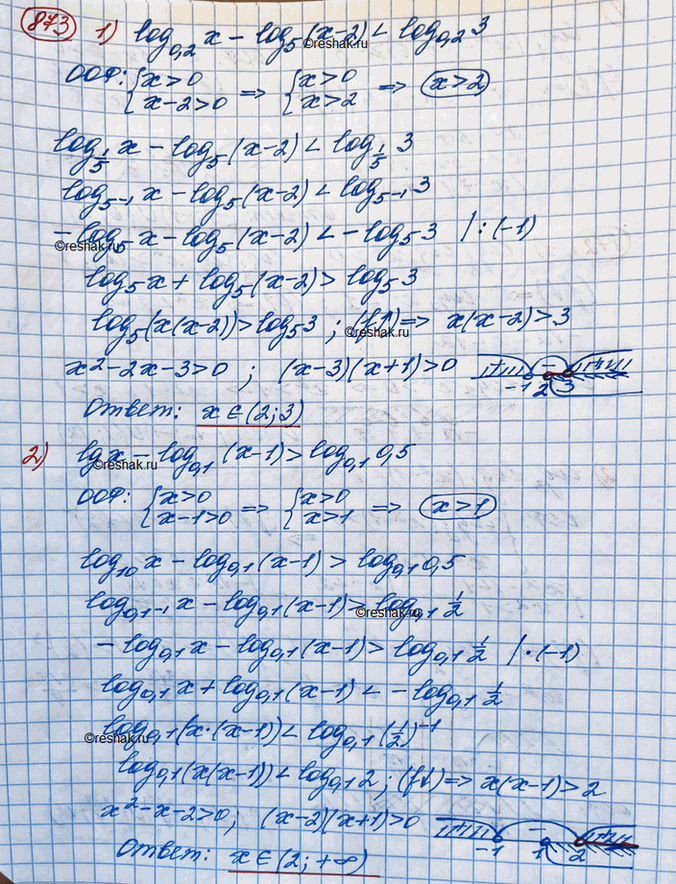 873 1) log₀,₂ x − log₅(x−2) < log₀,₂ 3
©reshak.ru
ООФ: { x>0 x−2>0 => { x>0 x>2 => x>2
log_{1/5} x − log₅(x−2) < log_{1/5} 3
log_{5⁻¹} x − log₅(x−2) < log_{5⁻¹} 3
−log₅ x − log₅(x−2) < −log₅ 3 | : (−1)
©reshak.ru
log₅ x + log₅(x−2) > log₅ 3
log₅(x(x−2)) > log₅ 3 ; (f↑) => x(x−2) > 3
©reshak.ru
x²−2x−3>0 ; (x−3)(x+1)>0 + − + −1 2 3
Ответ: x ∈ (2; 3)
2) lg x − log₀,₁ (x−1) > log₀,₁ 0,5
©reshak.ru
ООФ: { x>0 x−1>0 => { x>0 x>1 => x>1
log₁₀ x − log₀,₁(x−1) > log₀,₁ 0,5
log_{0,1⁻¹} x − log₀,₁(x−1) > log₀,₁ ½
©reshak.ru
−log₀,₁ x − log₀,₁(x−1) > log₀,₁ ½ | · (−1)
log₀,₁ x + log₀,₁(x−1) < −log₀,₁ ½
log₀,₁(x·(x−1)) < log₀,₁ (½)⁻¹
©reshak.ru
log₀,₁(x(x−1)) < log₀,₁ 2 ; (f↓) => x(x−1) > 2
x²−x−2>0; (x−2)(x+1)>0 + − + −1 1 2
Ответ: x ∈ (2; +∞)